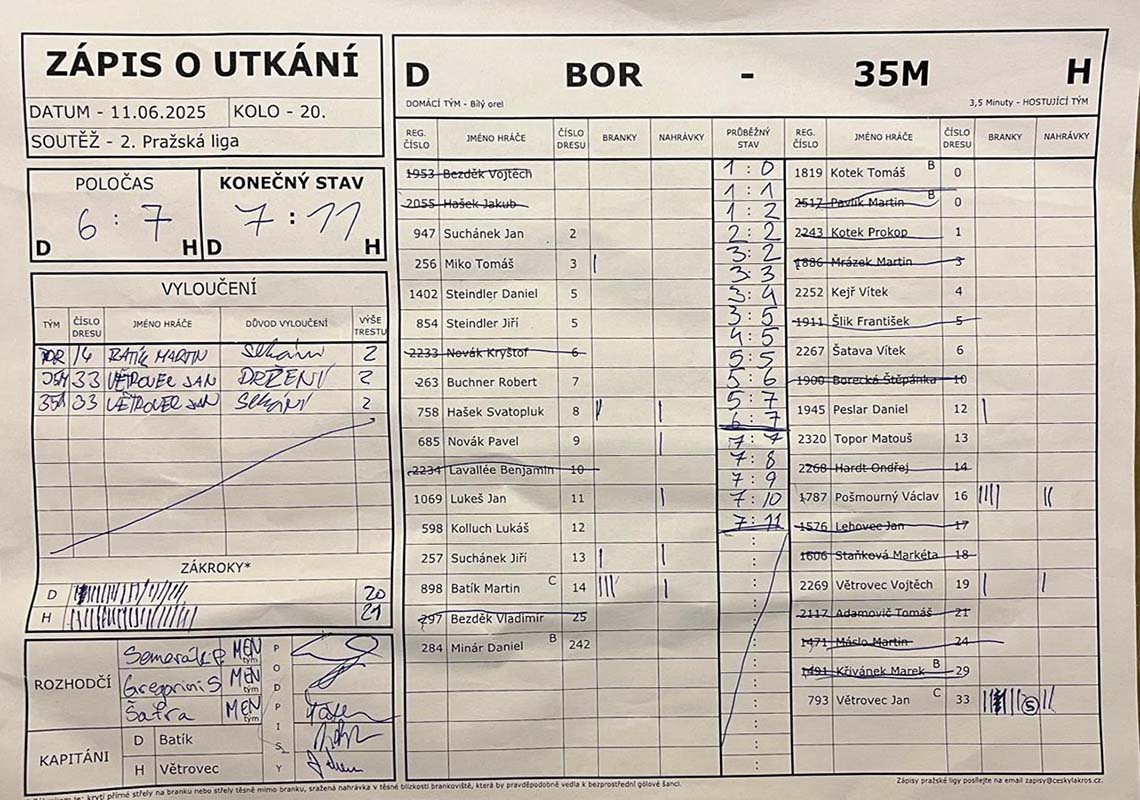 ZÁPIS O UTKÁNÍ
DATUM - 11.06.2025 KOLO - 20.
SOUTĚŽ - 2. Pražská liga
POLOČAS
6 : 7
D H
KONEČNÝ STAV
7 : 11
D H
VYLOUČENÍ
TÝM ČÍSLO DRESU JMÉNO HRÁČE DŮVOD VYLOUČENÍ VÝŠE TRESTU
BOR 14 BATÍK MARTIN Sekání 2
35M 33 VĚTROVEC JAN DRŽENÍ 2
35M 33 VĚTROVEC JAN Sekání 2
ZÁKROKY*
D 20
H 21
ROZHODČÍ
Semerák P MEN tým
Gregorini S MEN tým
Šafra MEN tým
PODPISY
KAPITÁNI
D Batík
H Větrovec
D BOR - 35M H
DOMÁCÍ TÝM - Bílý orel 3,5 Minuty - HOSTUJÍCÍ TÝM
REG. ČÍSLO JMÉNO HRÁČE ČÍSLO DRESU BRANKY NAHRÁVKY PRŮBĚŽNÝ STAV REG. ČÍSLO JMÉNO HRÁČE ČÍSLO DRESU BRANKY NAHRÁVKY
1953 Bezděk Vojtěch
2055 Hašek Jakub
947 Suchánek Jan 2
256 Miko Tomáš 3 |
1402 Steindler Daniel 5
854 Steindler Jiří 5
2233 Novák Kryštof 6
263 Buchner Robert 7
758 Hašek Svatopluk 8 || |
685 Novák Pavel 9 |
2234 Lavallée Benjamin 10
1069 Lukeš Jan 11 |
598 Kolluch Lukáš 12
257 Suchánek Jiří 13 | |
898 Batík Martin C 14 ||| |
297 Bezděk Vladimír 25
284 Minár Daniel B 242
1 : 0
1 : 1
1 : 2
2 : 2
3 : 2
3 : 3
3 : 4
3 : 5
4 : 5
5 : 5
5 : 6
5 : 7
6 : 7
7 : 7
7 : 8
7 : 9
7 : 10
7 : 11
1819 Kotek Tomáš B 0
2517 Pavlík Martin B 0
2243 Kotek Prokop 1
1886 Mrázek Martin 3
2252 Kejř Vítek 4
1911 Šlik František 5
2267 Šatava Vítek 6
1900 Borecká Štěpánka 10
1945 Peslar Daniel 12 |
2320 Topor Matouš 13
2268 Hardt Ondřej 14
1787 Pošmourný Václav 16 |||| ||
1576 Lehovec Jan 17
1606 Staňková Markéta 18
2269 Větrovec Vojtěch 19 | |
2117 Adamovič Tomáš 21
1471 Máslo Martin 24
1491 Křivánek Marek B 29
793 Větrovec Jan C 33 5 ||
krytí přímé střely na branku nebo střely těsně mimo branku, sražená nahrávka v těsné blízkosti brankoviště, která by pravděpodobně vedla k bezprostřední gólové šanci.
Zápisy pražské ligy posílejte na email zapisy@ceskylakros.cz.